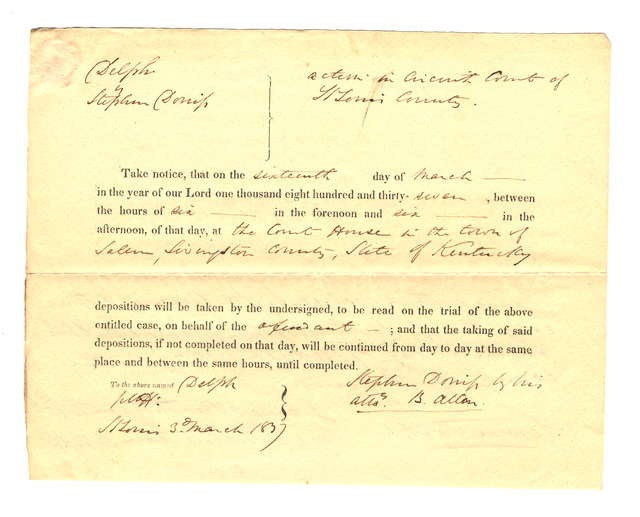 Delph
vs
Stephen Dorriss
action in Circuit Court of
St Louis County.
Take notice, that on the sixteenth day of March
in the year of our Lord one thousand eight hundred and thirty-seven, between
the hours of six in the forenoon and six in the
afternoon, of that day, at the Court House in the town of
Salem, Livingston County, State of Kentucky
depositions will be taken by the undersigned, to be read on the trial of the above
entitled case, on behalf of the defendant ; and that the taking of said
depositions, if not completed on that day, will be continued from day to day at the same
place and between the same hours, until completed.
To the above named Delph
pltff:
St Louis 3d March 1837
Stephen Dorriss by his
atto. B. Allen.